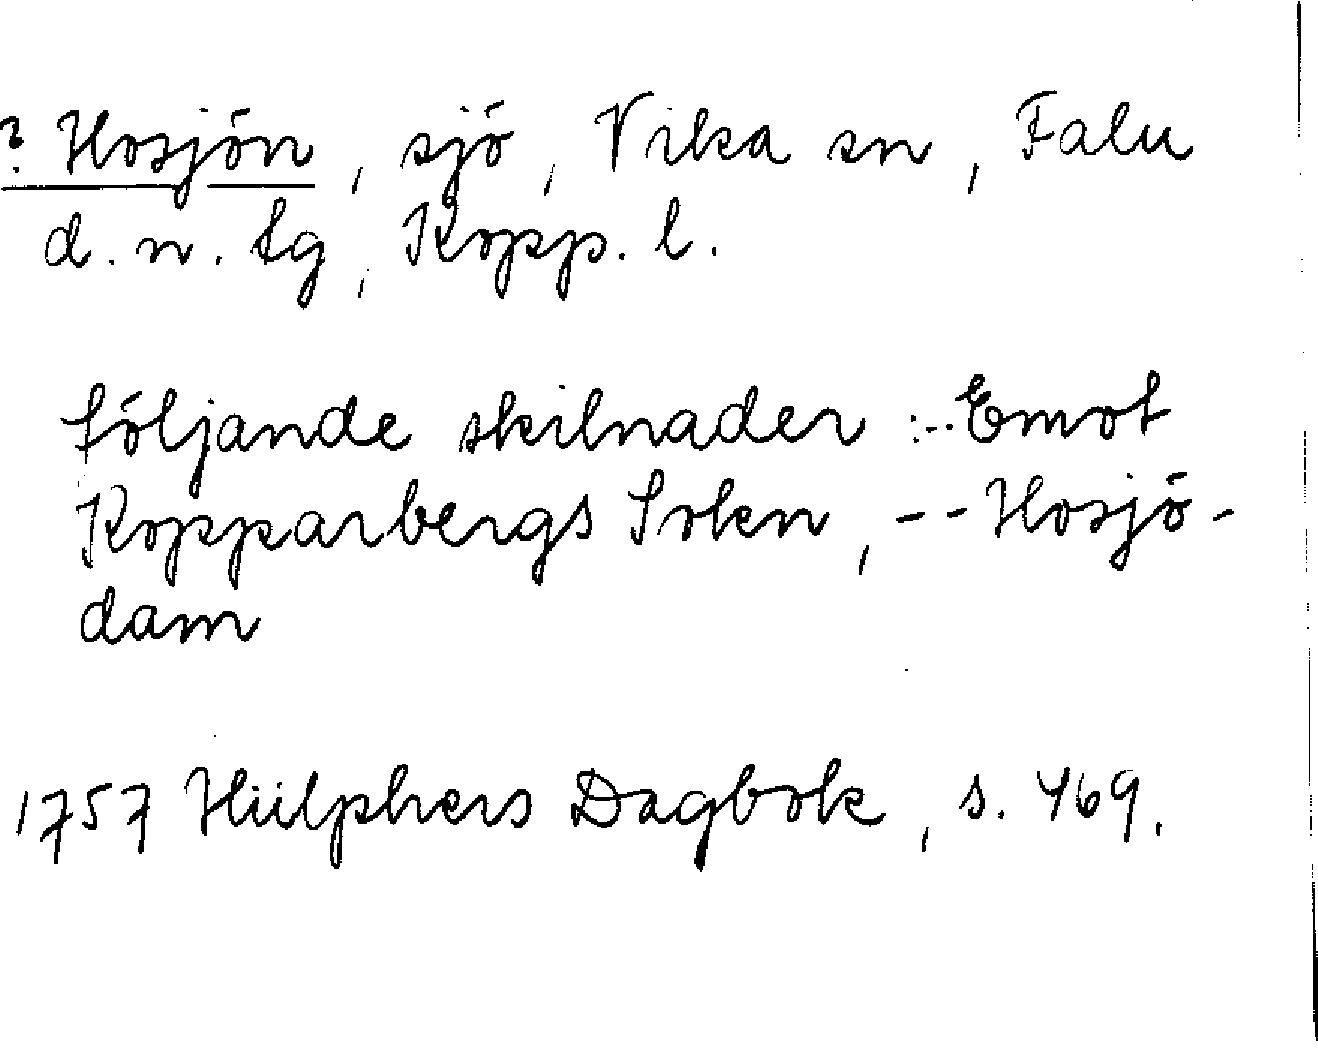 ? Hosjön, sjö, Vika sn, Falu
d. n. tg, Kopp. l.
följande skilnader :-- Emot
Kopparbergs Sokn, -- Hosjö-
dam
1757 Hülphers Dagbok, s. 469.